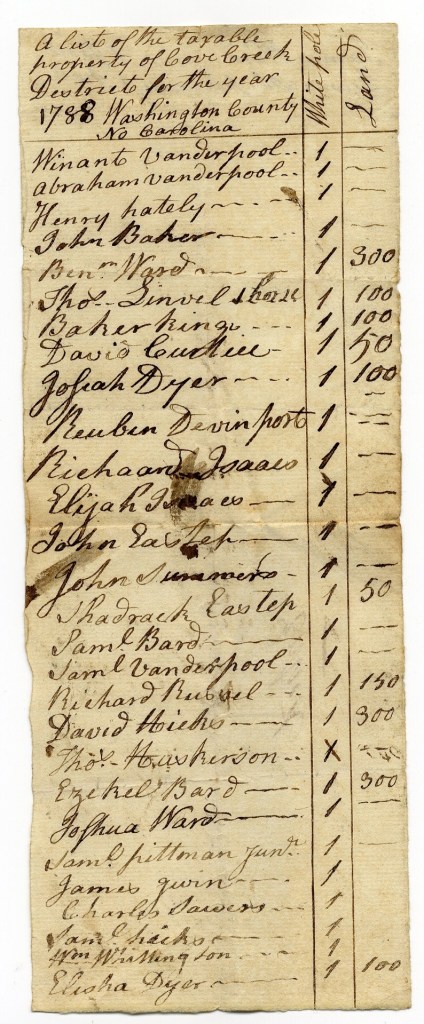 A list of the taxable
property of Cove Creek
District for the year
1788 Washington County
No Carolina
White pole
Land
Winant Vanderpool 1 —
abraham Vanderpool 1 —
Henry hately 1 —
John Baker 1 —
Benm Ward 1 300
Thos Linvel 1 horse 1 100
Baker King 1 100
David Curttee 1 50
Josiah Dyer 1 100
Reuben Devinport 1 —
Richaard Isaacs 1 —
Elijah Isaacs 1 —
John Eastep 1 —
John Summers 1 —
Shadrack Eastep 1 50
Saml Bard 1 —
Saml Vanderpool 1 —
Richard Russel 1 150
David Hicks 1 300
Thos Haskerson X
Ezekel Bard 1 300
Joshua Ward 1 —
Saml pittman Junr 1 —
James gwin 1
Charles Sawers 1
Saml hicks 1
Wm Whittington 1
Elisha Dyer 1 100